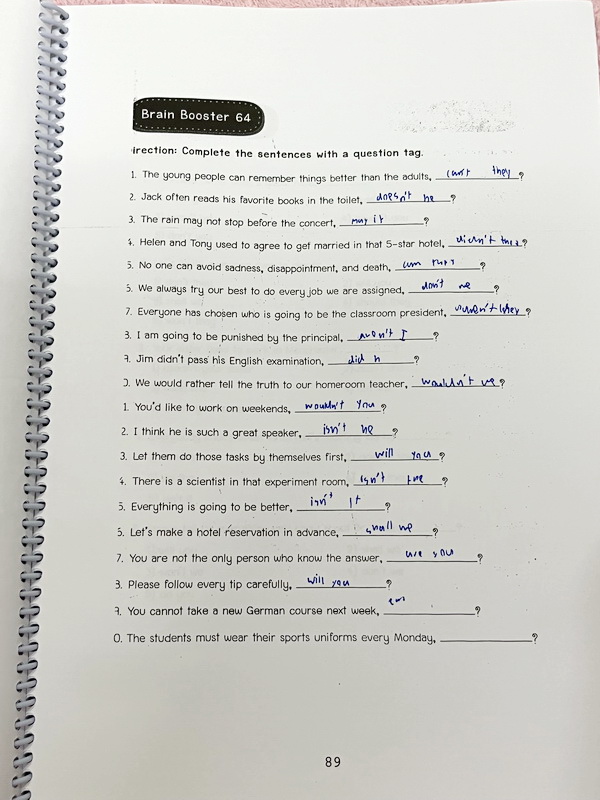 Brain Booster 64
irection: Complete the sentences with a question tag.
1. The young people can remember things better than the adults, can't they?
2. Jack often reads his favorite books in the toilet, doesn't he?
3. The rain may not stop before the concert, may it?
4. Helen and Tony used to agree to get married in that 5-star hotel, didn't they?
5. No one can avoid sadness, disappointment, and death, can they?
6. We always try our best to do every job we are assigned, don't we?
7. Everyone has chosen who is going to be the classroom president, haven't they?
8. I am going to be punished by the principal, aren't I?
9. Jim didn't pass his English examination, did h?
0. We would rather tell the truth to our homeroom teacher, wouldn't we?
1. You'd like to work on weekends, wouldn't you?
2. I think he is such a great speaker, isn't he?
3. Let them do those tasks by themselves first, will you?
4. There is a scientist in that experiment room, isn't?
5. Everything is going to be better, isn't it?
6. Let's make a hotel reservation in advance, shall we?
7. You are not the only person who know the answer, are you?
8. Please follow every tip carefully, will you?
9. You cannot take a new German course next week, ?
0. The students must wear their sports uniforms every Monday, ?
89